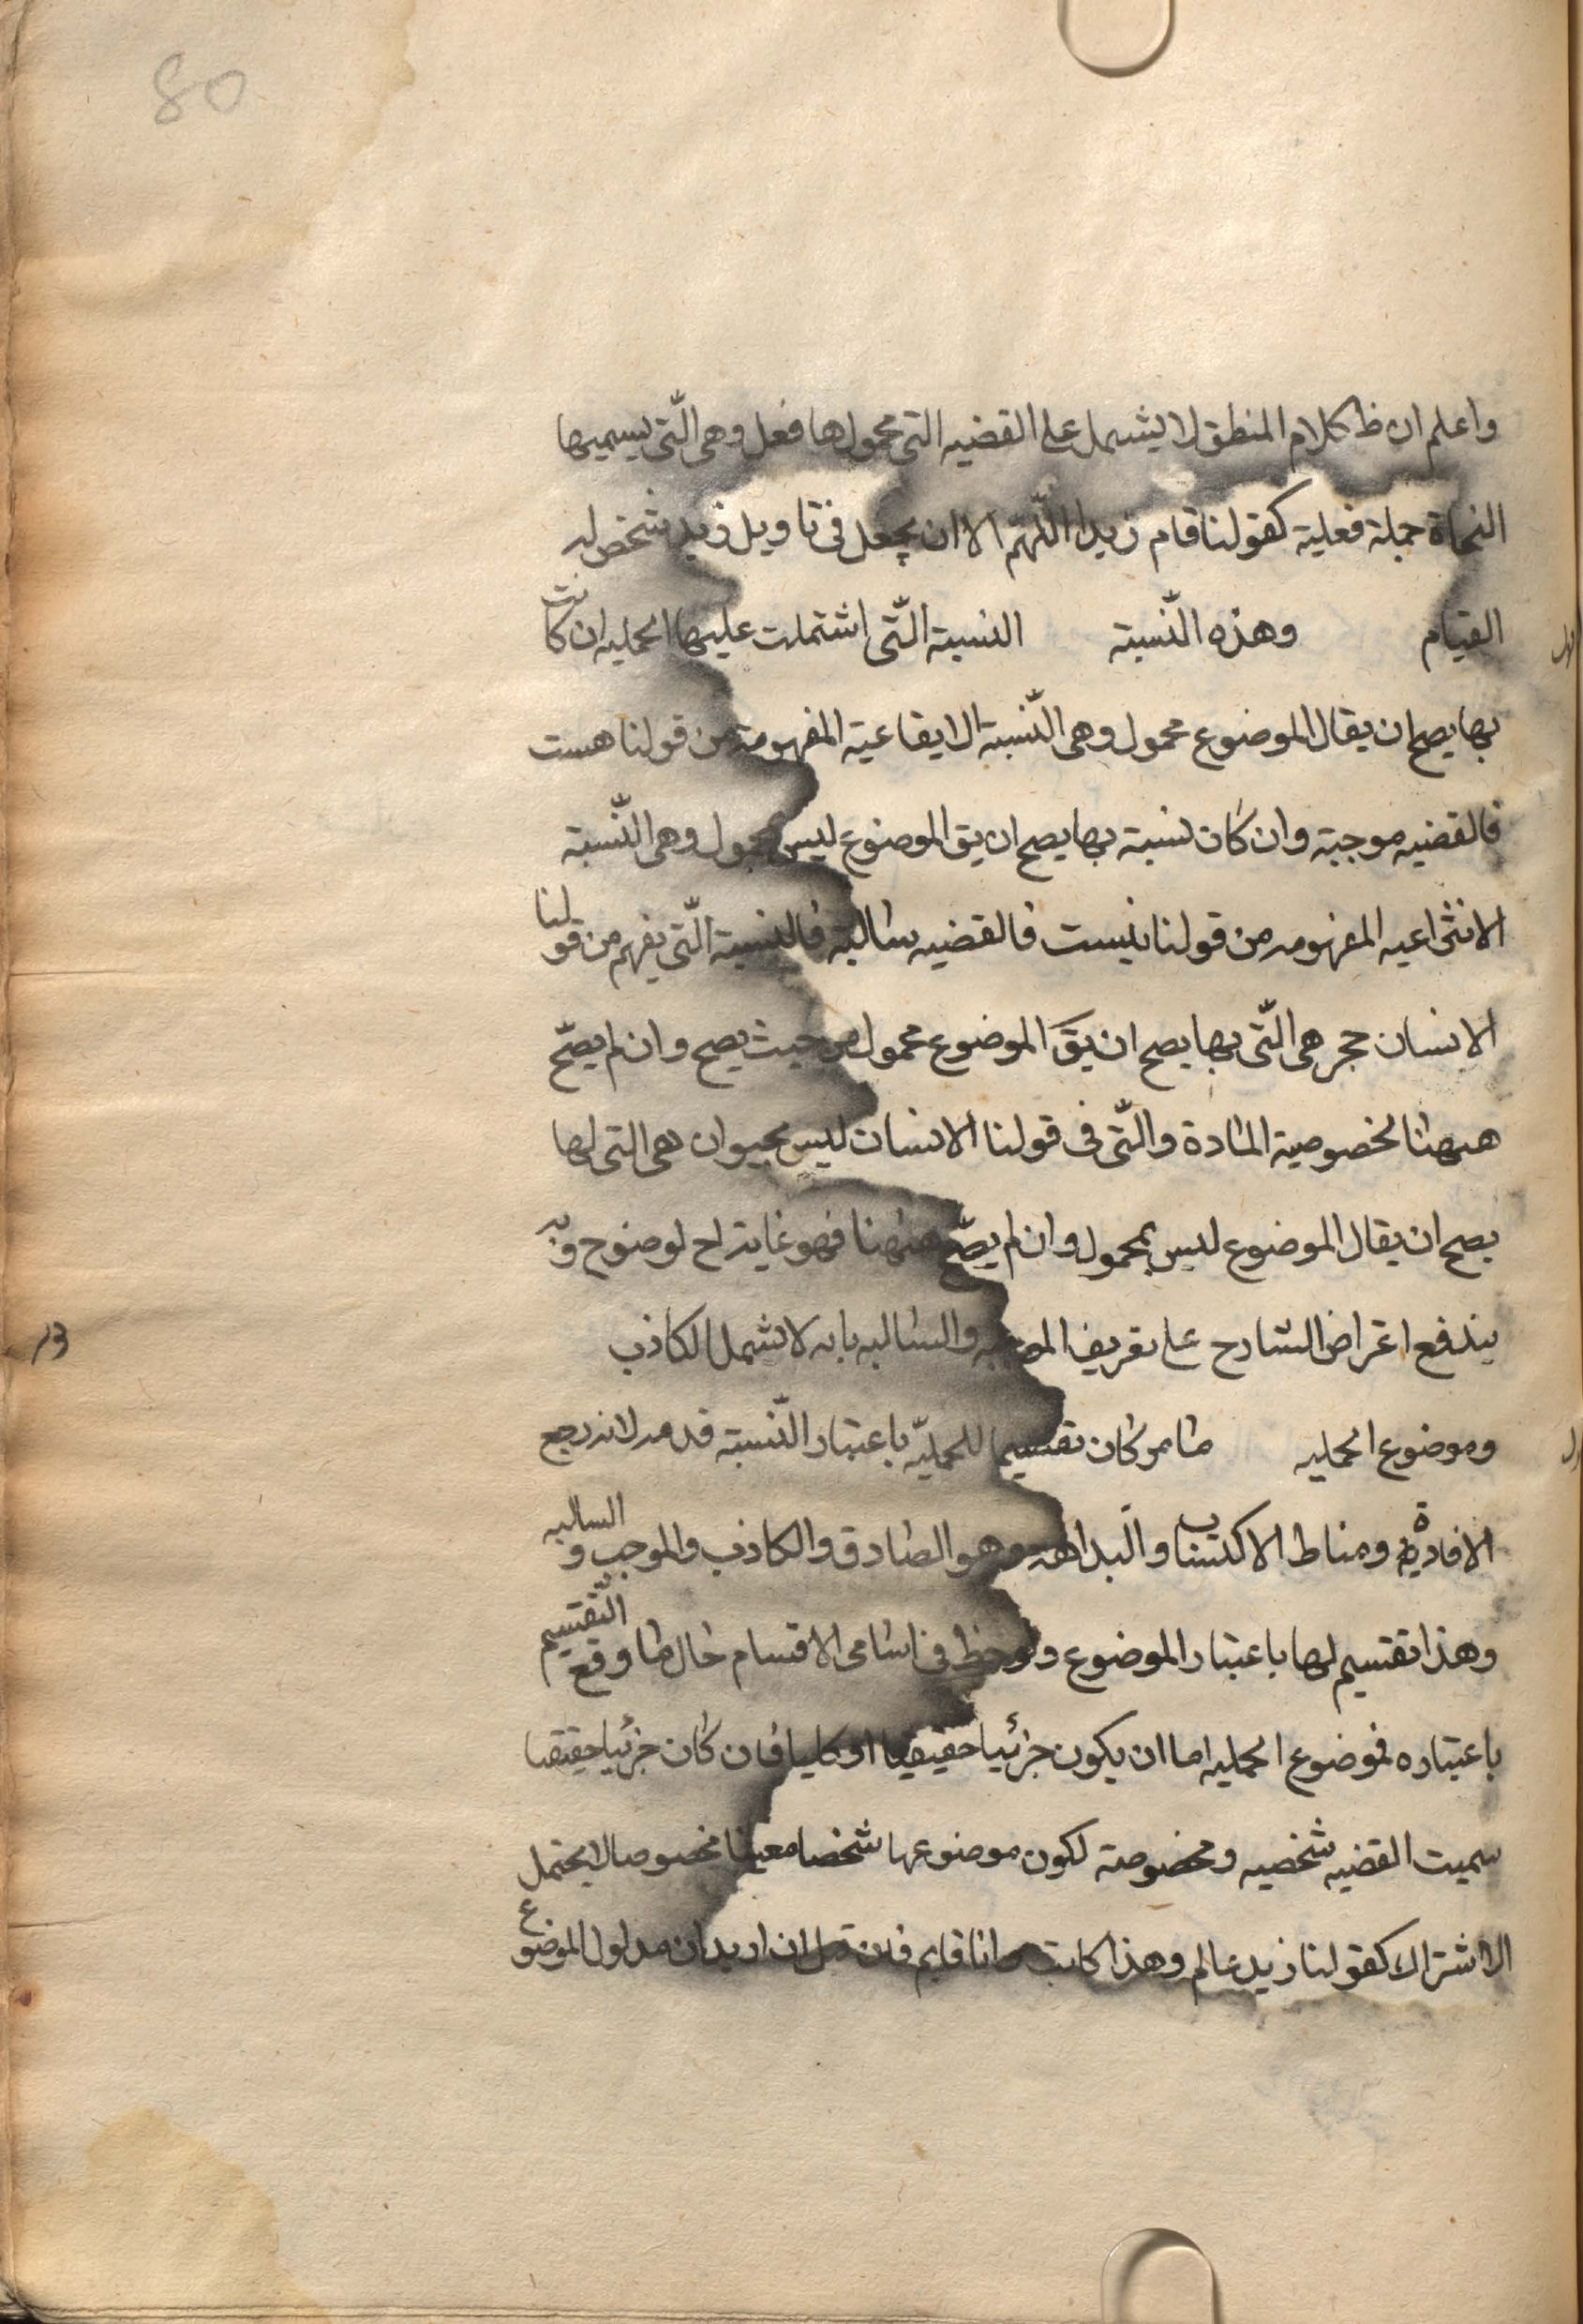 80
واعلم ان ظ كلام المنطق لا يشمل على القضيه التى محمولها فعل وهى الّتى يسميها
النحاة جملة فعلية كقولنا قام زيد اللّهمّ الا ان يجعل فى تاويل زيد شخص له
القيام وهذه النّسبة النسبة الّتى اشتملت عليها الحمليه ان كانت
بها يصح ان يقال الموضوع محمول وهى النّسبة الايقاعية المفهومة من قولنا هست
فالقضيه موجبة وان كان نسبة بها يصح ان يق الموضوع ليس بمحمول وهى النّسبة
الانتزاعيه المفهومه من قولنا نيست فالقضيه سالبة فالنسبة الّتى يفهم من قولنا
الانسان حجر هى الّتى بها يصح ان يق الموضوع محمول من حيث يصح وان لم يصّح
ههنا لخصوصية المادة والّتى فى قولنا الانسان ليس بحيوان هى التى لها
يصح ان يقال الموضوع ليس بمحمول وان لم يصّح ههنا فهو غاية لوضوح وبه
يندفع اعتراض الشارح على تعريف الموجبه والسالبه بانه لا تشمل الكاذب
وموضوع الحمليه ما مر كان تقسيما للحمليّة باعتبار النّسبة قدمه لانه رجع
الافادة ومناط الاكتساب والبداهة وهو الصادق والكاذب والموجب والسالبه
وهذا تقسيم لها باعتبار الموضوع ولوحظ فى اسامى الاقسام حال ما وقع التّقسيم
باعتباره فموضوع الحمليه اما ان يكون جزئيا حقيقيا او كليا فان كان جزئيا حقيقيا
سميت القضيه شخصيه ومخصوصة لكون موضوعها شخصا معينا مخصوصا لا يحتمل
الاشتراك كقولنا زيد عالم وهذا كاتب وانا قايم فان قيل ان اريد ان مدلول الموضوع